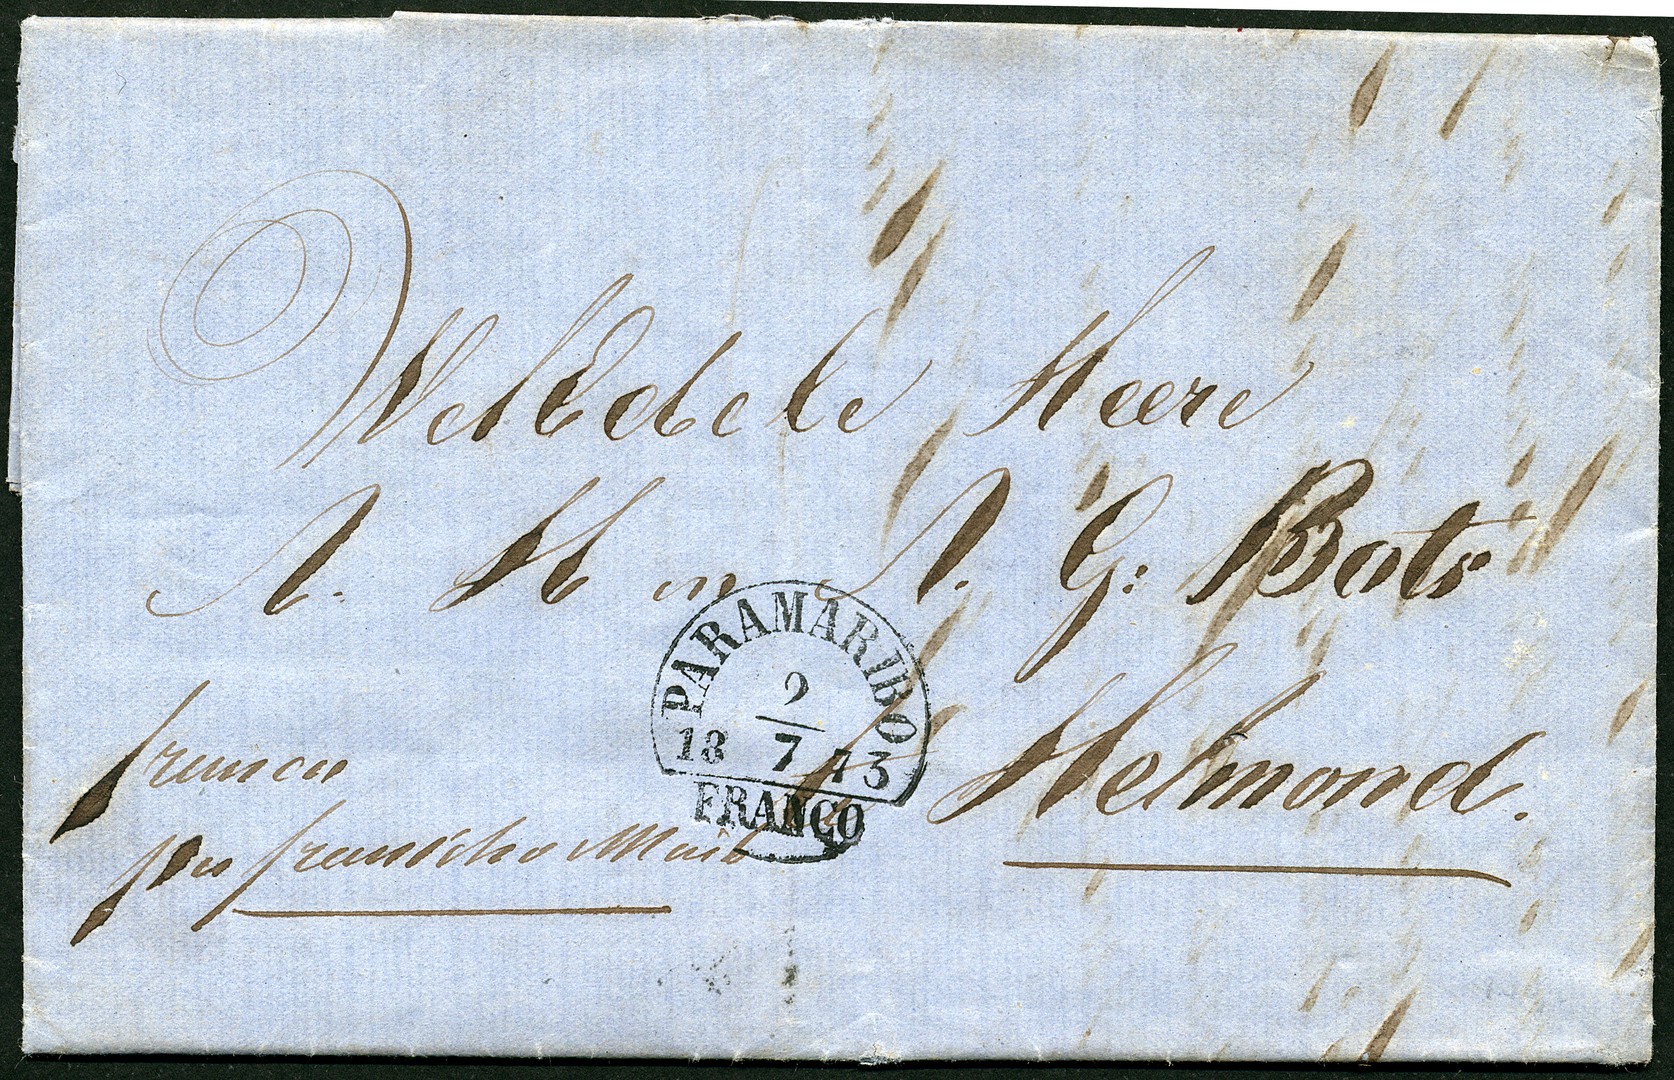 WelEdele Heere
A. H en A. G: Bots
Helmond.
franco
per fransche Mail
PARAMARIBO
9
18 7 73
FRANCO